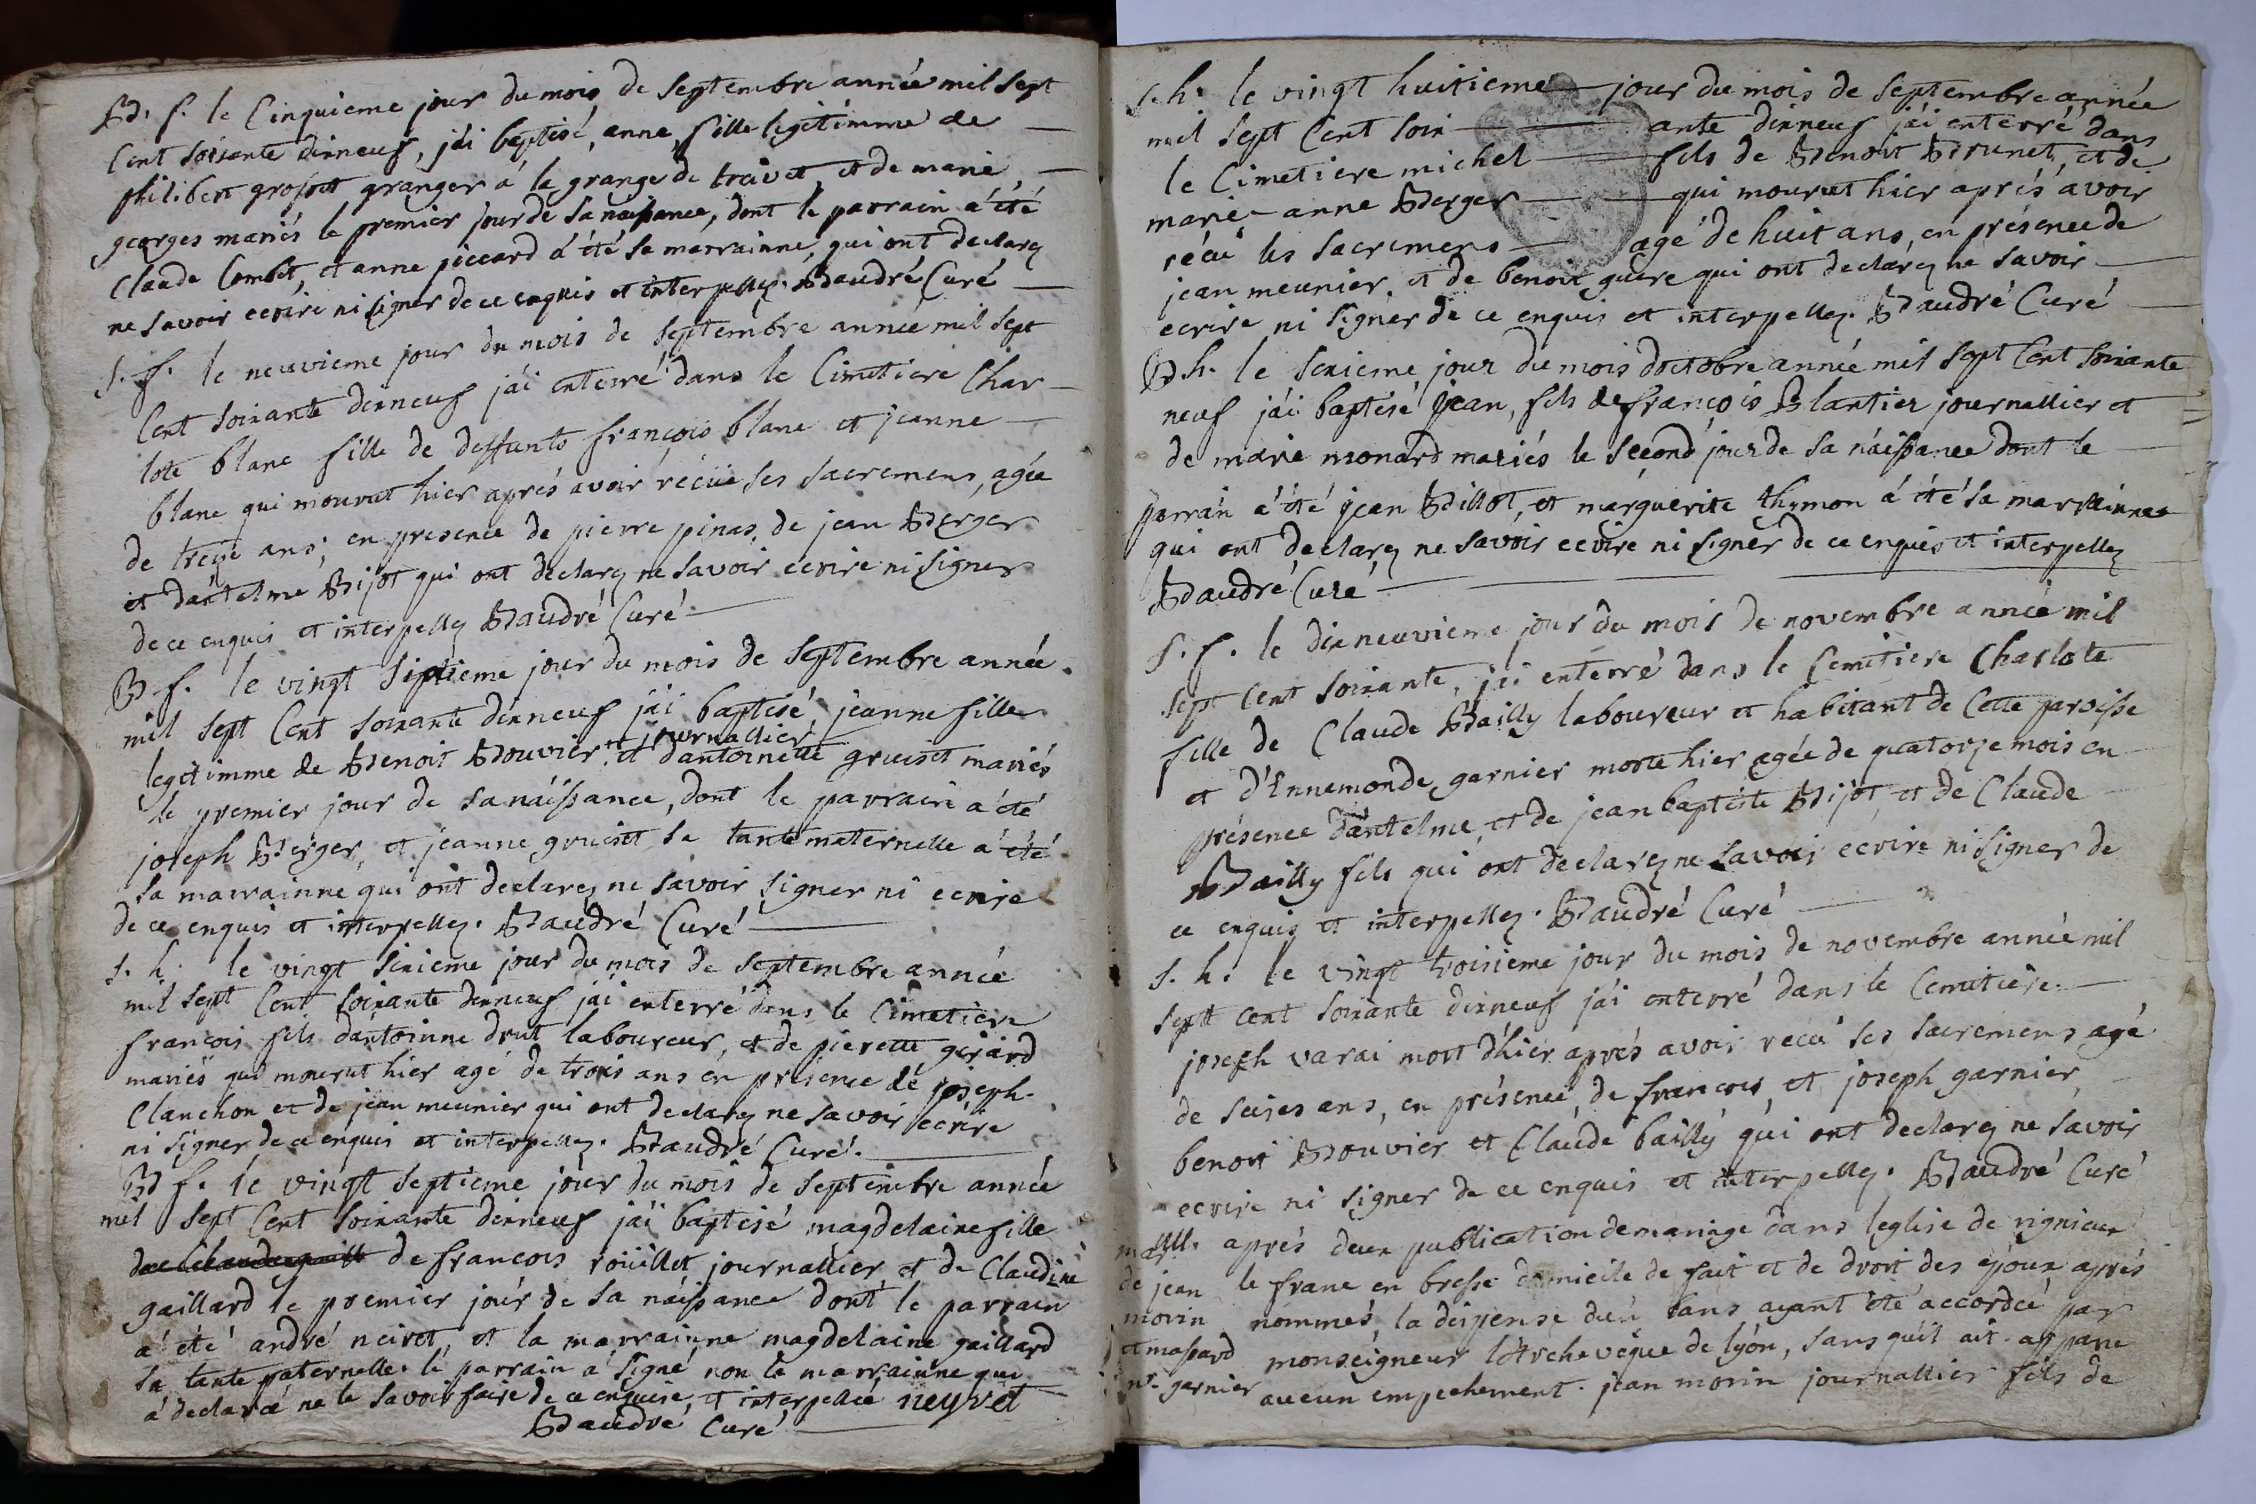 Bd. f. le Cinquieme jour du mois de septembre année mil sept
Cent soixante dixneuf, jái baptisé, anne, fille legitimme de
philibert grosset granger á la grange de et de marie
georges mariés le premier jour de sa naissance, dont le parrain á été
Claude Combet, et anne piccard á été sa marrainne, qui ont declarez
ne savoir ecrire ni signer de ce enquis et interpellez. Baudré Curé
S. f. le neuvieme jour du mois de septembre année mil sept
Cent soixante dixneuf jái enterré dans le Cimetiere Char-
lote blanc fille de deffunts françois blanc et jeanne
blanc qui mourut hier aprés avoir réçüe ses sacremens, agée
de treize ans, en presence de pierre pinas, de jean Berger
et dántelme Bijot qui ont declarez ne savoir ecrire ni signer
de ce enquis et interpellez Baudré Curé
B f. le vingt siptieme jour du mois de septembre année
mil sept Cent soixante dixneuf jái baptisé, jeanne fille
legitimme de Benoit Bouvier journallier et dantoinette gruiset mariés
le premier jour de sa náissance, dont le parrain a été
joseph Berger, et jeanne gruiset sa tante maternelle a été
sa marrainne qui ont declarez ne savoir signer ni ecrire
de ce enquis et interpellez. Baudré Curé
S. h. le vingt sixieme jour du mois de septembre année
mil sept Cent soixante dixneuf jái enterré dans le Cimetiere
françois fils dantoinne drut laboureur, et de pierette girard
mariés qui mourut hier agé de trois ans en presence de joseph
Clanchon et de jean meunier qui ont declarez ne savoir ecrire
ni signer de ce enquis et interpellez. Baudré Curé.
B f. le vingt septieme jour du mois de septembre année
mil sept Cent soixante dixneuf jái baptisé magdelaine fille
de françois roüillet journallier et de Claudine
gaillard le premier jour de sa náissance dont le parrain
á été andré neiret, et la marrainne magdelaine gaillard
sa tante paternelle. le parrain a signé non la marrainne qui
á declaré ne le savoir faire de ce enquise, et interpellée neyret
Baudré Curé
S. h. le vingt huitieme jour du mois de septembre année
mil sept Cent soix ante dixneuf jái enterré dans
le Cimetiere michel fils de Benoit Brunet, et de
marie anne Berger qui mourut hier aprés avoir
réçû les sacremens agé de huit ans, en présence de
jean meunier, et de benoit guere qui ont declarez ne savoir
ecrire ni signer de ce enquis et interpellez. Baudré Curé
B h. le sixieme jour du mois doctobre année mil sept Cent soixante
neuf jái baptisé jean, fils de françois Blantier journallier et
de marie monard mariés le second jour de sa náissance dont le
parrain á été jean Billot, et marguerite thymon á été sa marrainne
qui ont declarez ne savoir ecrire ni signer de ce enquis et interpellez
Baudré Curé
S. f. le dixneuvieme jour du mois de novembre année mil
sept cent soixante, jái enterré dans le Cemitiere Charlote
fille de Claude Bailly laboureur et habitant de Cette paroisse
et d'Ennemonde garnier morte hier agée de quatorze mois en
présence dántelme, et de jean baptiste Bijot, et de Claude
Bailly fils qui ont declarez ne savoir ecrire ni signer de
ce enquis et interpellez. Baudré Curé
S. h. le vingt troisieme jour du mois de novembre année mil
septt cent soixante dixneuf jái enterré dans le Cemitiere
joseph varai mort dhier aprés avoir reçû ses sacremens agé
de seizes ans, en présence, de françois, et joseph garnier,
benoit Bouvier et Claude bailly qui ont declarez ne savoir
ecrire ni signer de ce enquis et interpellez. Baudré Curé
aprés deux publication de mariage dans leglise de rignieux
de jean le franc en bresse domicile de fait et de droit des époux aprés
morin nommés, la dispense dun bans ayant été accordeé par
et massard monseigneur lArchevêque de lyón, sans quil ait apparu
garnier aucun empechement. jean morin journallier fils de